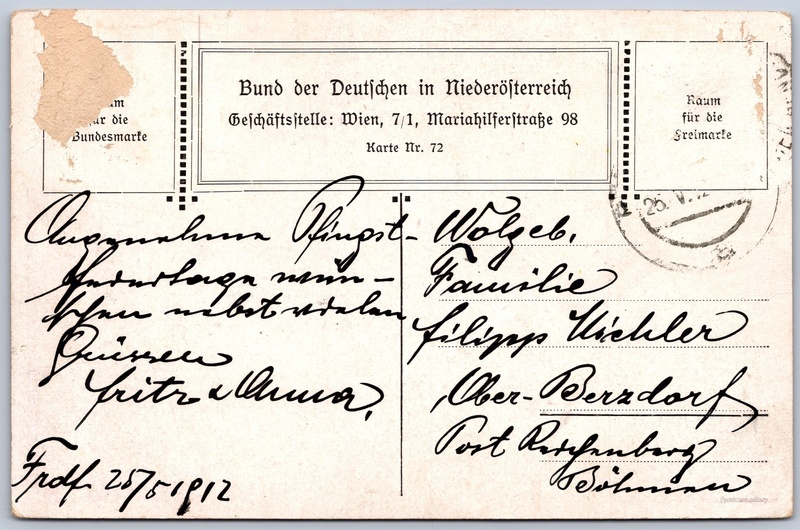 Raum
für die
Bundesmarke
Bund der Deutschen in Niederösterreich
Geschäftsstelle: Wien, 7/1, Mariahilferstraße 98
Karte Nr. 72
Raum
für die
Freimarke
25. V. 12
Angenehme Pfingst-
feiertage wün-
schen nebst vielen
Grüssen
Fritz & Anna.
Frdf. 25/5 1912
Wolgeb.
Familie
Filipp
Ober-Berzdorf
Post Reichenberg
Böhmen